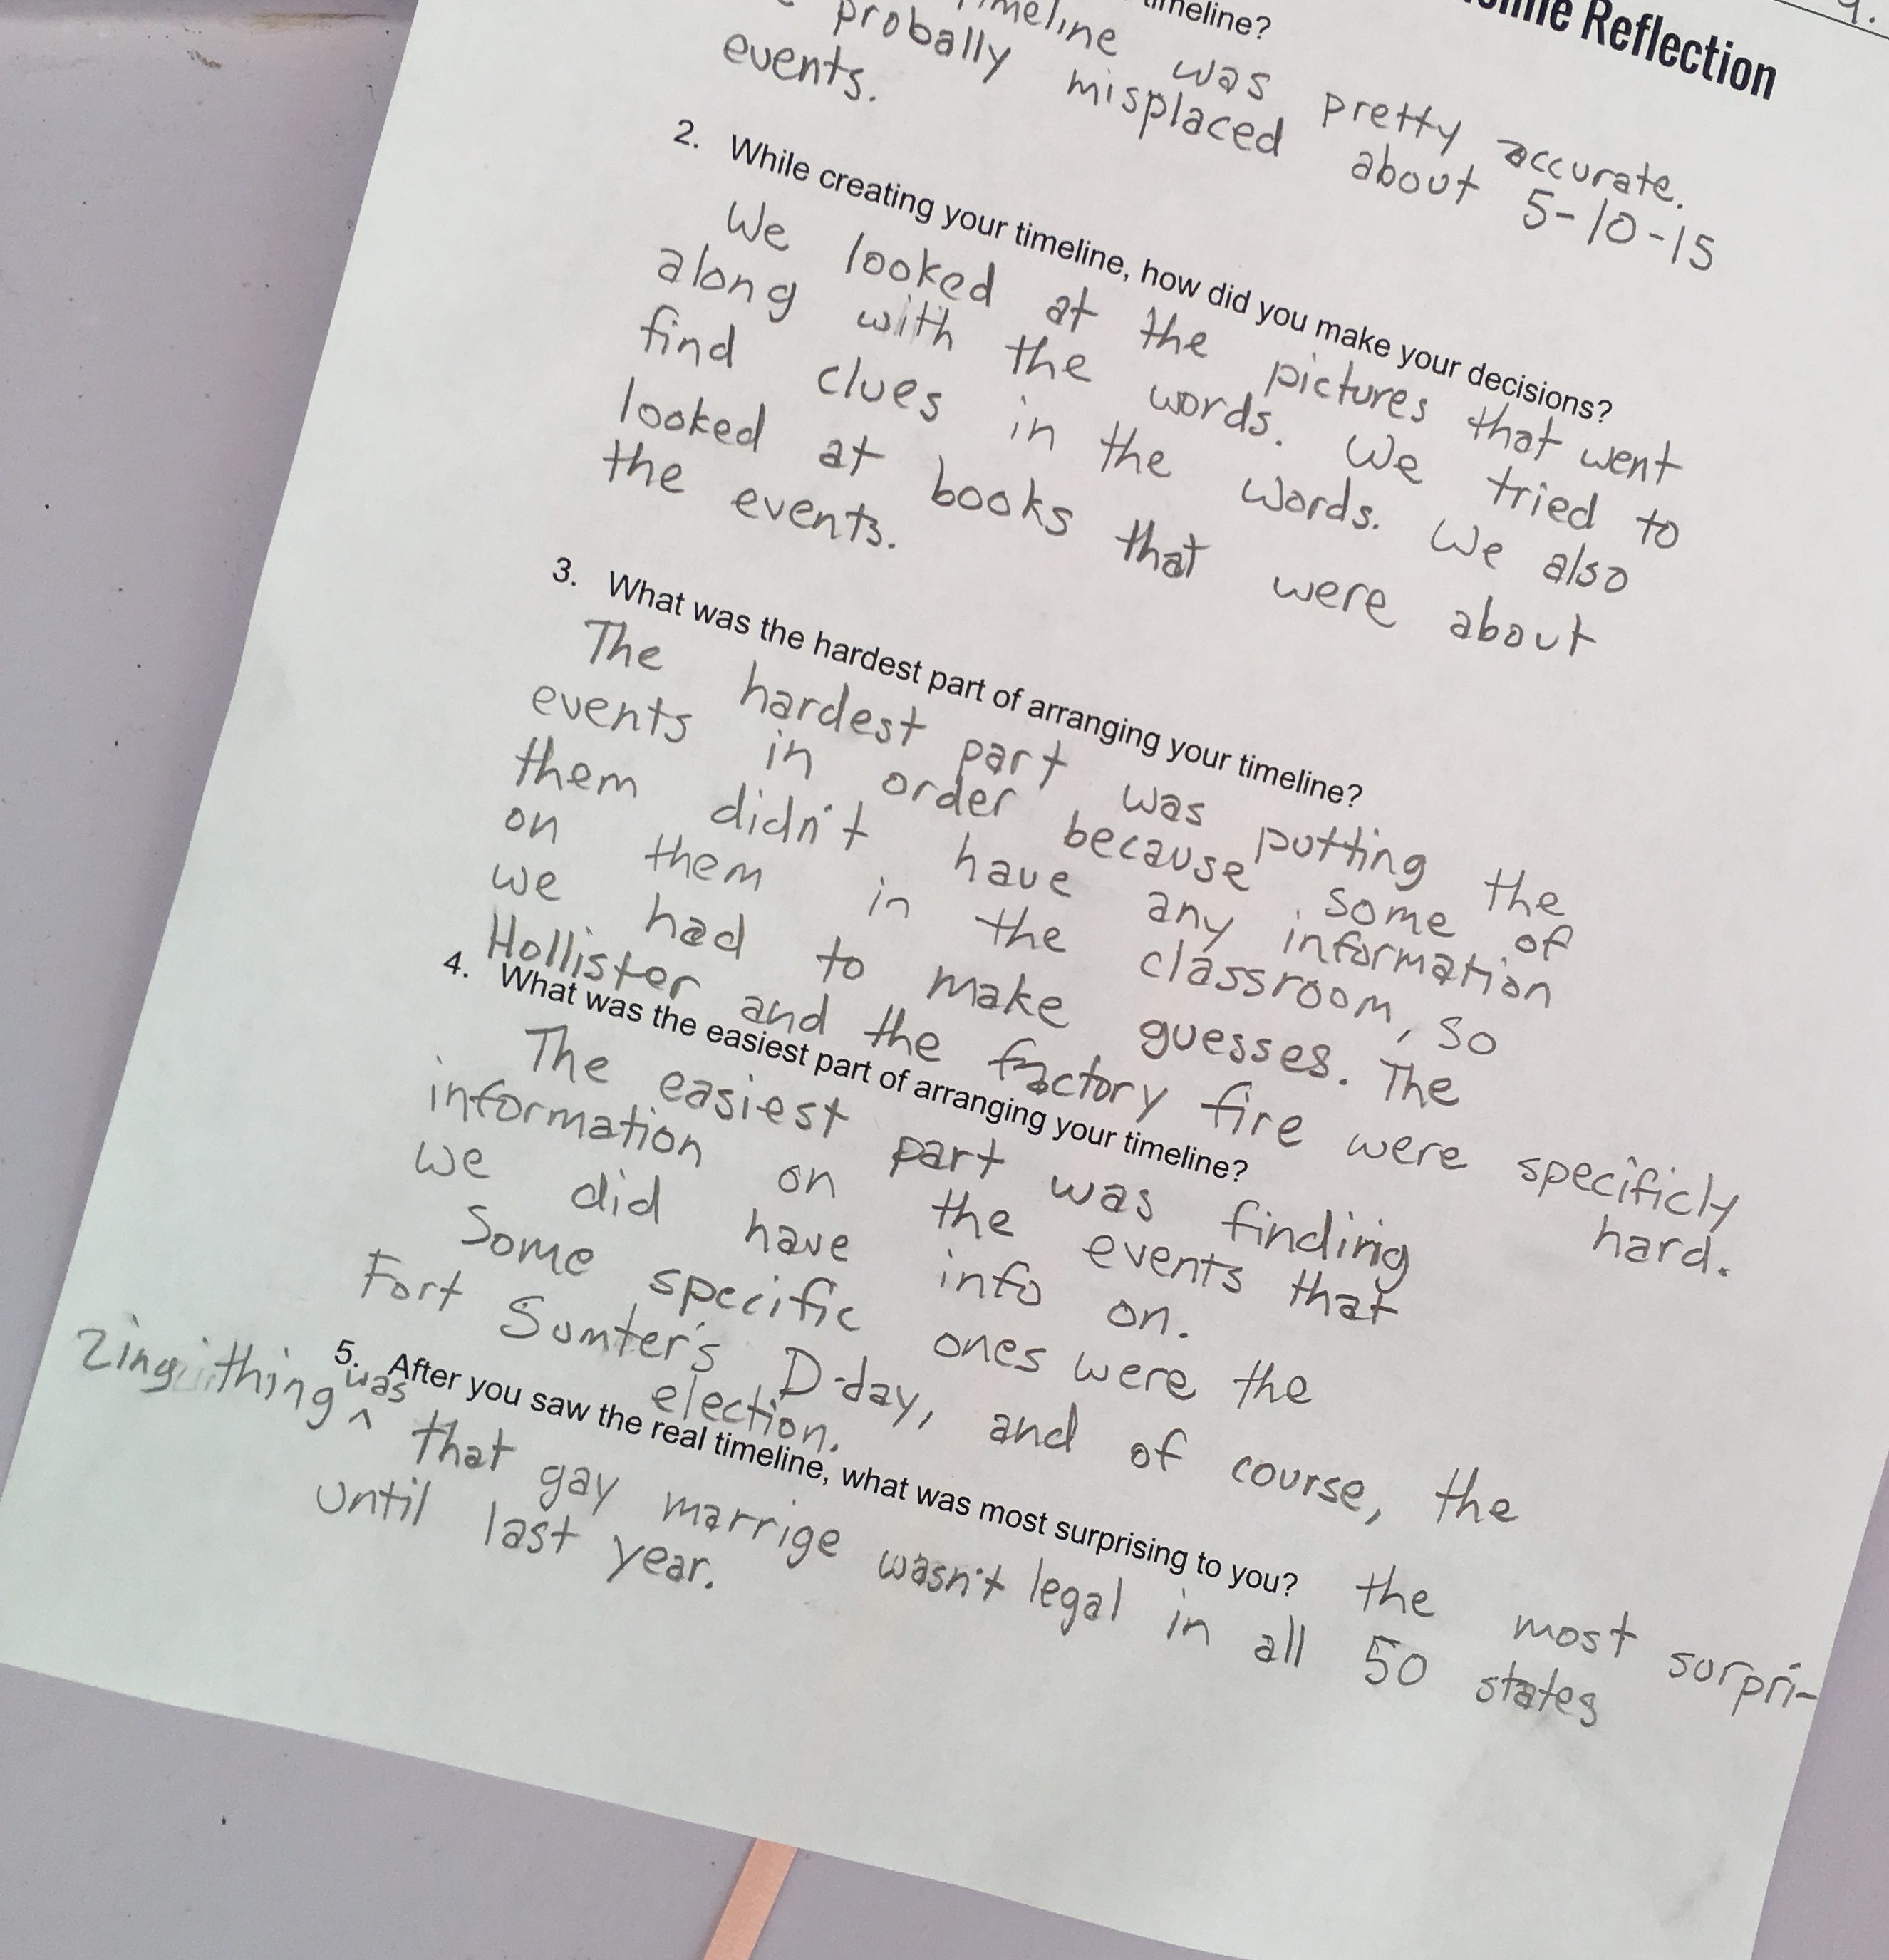 Reflection
timeline?
timeline was pretty accurate.
probally misplaced about 5-10-15
events.
2. While creating your timeline, how did you make your decisions?
We looked at the pictures that went
along with the words. We tried to
find clues in the words. We also
looked at books that were about
the events.
3. What was the hardest part of arranging your timeline?
The hardest part was putting the
events in order because some of
them didn't have any information
on them in the classroom, so
we had to make guesses. The
Hollister and the factory fire were specificly
hard.
4. What was the easiest part of arranging your timeline?
The easiest part was finding
information on the events that
we did have info on.
Some specific ones were the
Fort Sumter's D-day, and of course, the
election.
5. After you saw the real timeline, what was most surprising to you? the most surpri-
zing thing was that gay marrige wasn't legal in all 50 states
until last year.